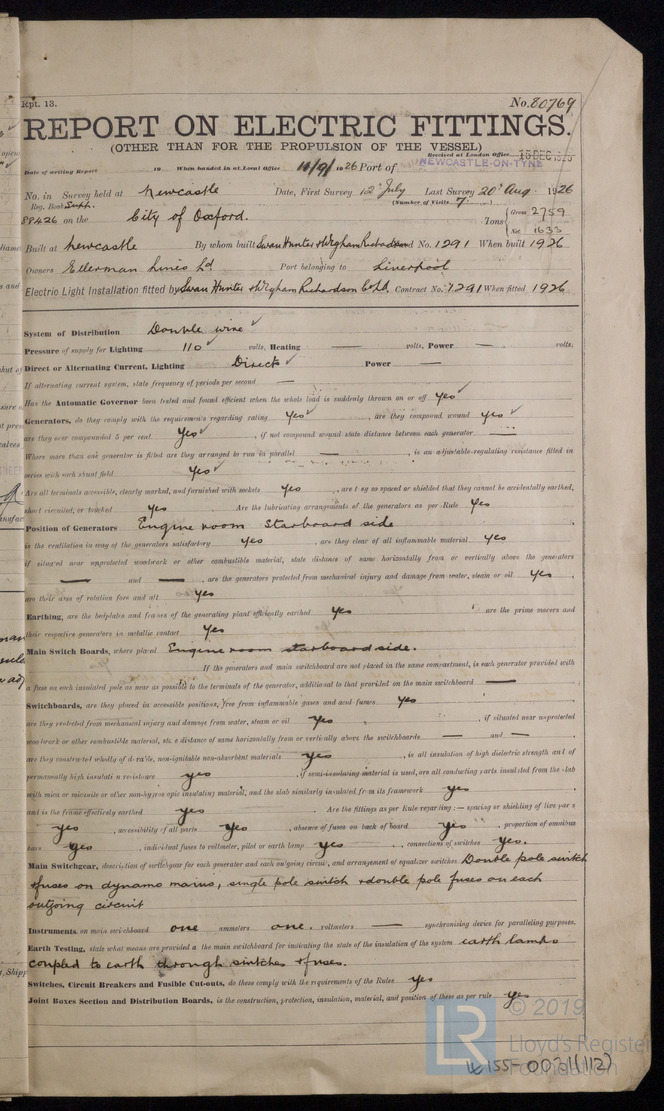 Rpt. 13.
No. 80769
REPORT ON ELECTRIC FITTINGS.
(OTHER THAN FOR THE PROPULSION OF THE VESSEL)
Received at London Office 15 DEC 1926
Date of writing Report 19 When handed in at Local Office 11/9/1926 Port of NEWCASTLE-ON-TYNE
No. in Survey held at Newcastle Date, First Survey 12th July Last Survey 20th Aug. 1926
Reg. Book Supp. (Number of Visits 7)
88426 on the City of Oxford. Tons { Gross 2759
Net 1633
Built at Newcastle By whom built Swan Hunter & Wigham Richardson Yard No. 1291 When built 1926
Owners Ellerman Lines Ld Port belonging to Liverpool
Electric Light Installation fitted by Swan Hunter & Wigham Richardson Co Ld. Contract No. 1291 When fitted 1926
System of Distribution Double wire
Pressure of supply for Lighting 110 volts, Heating — volts, Power — volts.
Direct or Alternating Current, Lighting Direct Power —
If alternating current system, state frequency of periods per second —
Has the Automatic Governor been tested and found efficient when the whole load is suddenly thrown on or off Yes
Generators, do they comply with the requirements regarding rating Yes, are they compound wound Yes
are they over compounded 5 per cent. Yes, if not compound wound state distance between each generator —
Where more than one generator is fitted are they arranged to run in parallel —, is an adjustable regulating resistance fitted in
series with each shunt field Yes
Are all terminals accessible, clearly marked, and furnished with sockets Yes, are they so spaced or shielded that they cannot be accidentally earthed,
short circuited, or touched Yes Are the lubricating arrangements of the generators as per Rule Yes
Position of Generators Engine room Starboard side
is the ventilation in way of the generators satisfactory Yes, are they clear of all inflammable material Yes
if situated near unprotected woodwork or other combustible material, state distance of same horizontally from or vertically above the generators
— and —, are the generators protected from mechanical injury and damage from water, steam or oil Yes,
are their axes of rotation fore and aft Yes
Earthing, are the bedplates and frames of the generating plant efficiently earthed Yes are the prime movers and
their respective generators in metallic contact Yes
Main Switch Boards, where placed Engine room starboard side.
If the generators and main switchboard are not placed in the same compartment, is each generator provided with
a fuse on each insulated pole as near as possible to the terminals of the generator, additional to that provided on the main switchboard —
Switchboards, are they placed in accessible positions, free from inflammable gases and acid fumes Yes
are they protected from mechanical injury and damage from water, steam or oil Yes, if situated near unprotected
woodwork or other combustible material, state distance of same horizontally from or vertically above the switchboards — and —
are they constructed wholly of durable, non-ignitable non-absorbent materials Yes, is all insulation of high dielectric strength and of
permanently high insulation resistance Yes, if semi-insulating material is used, are all conducting parts insulated from the slab
with mica or micanite or other non-hygroscopic insulating material, and the slab similarly insulated from its framework Yes
and is the frame effectively earthed Yes Are the fittings as per Rule regarding:— spacing or shielding of live parts
Yes, accessibility of all parts Yes, absence of fuses on back of board Yes, proportion of omnibus
bars Yes, individual fuses to voltmeter, pilot or earth lamp Yes, connections of switches Yes.
Main Switchgear, description of switchgear for each generator and each outgoing circuit, and arrangement of equalizer switches Double pole switch
& fuses on dynamo mains, single pole switch & double pole fuses on each
outgoing circuit
Instruments, on main switchboard one ammeters one. voltmeters — synchronising device for paralleling purposes.
Earth Testing, state what means are provided at the main switchboard for indicating the state of the insulation of the system earth lamps
coupled to earth through switches & fuses.
Switches, Circuit Breakers and Fusible Cut-outs, do these comply with the requirements of the Rules Yes
Joint Boxes Section and Distribution Boards, is the construction, protection, insulation, material, and position of these as per rule Yes
© 2019
LR
Lloyd's Register
Foundation
W155-0021(1/2)